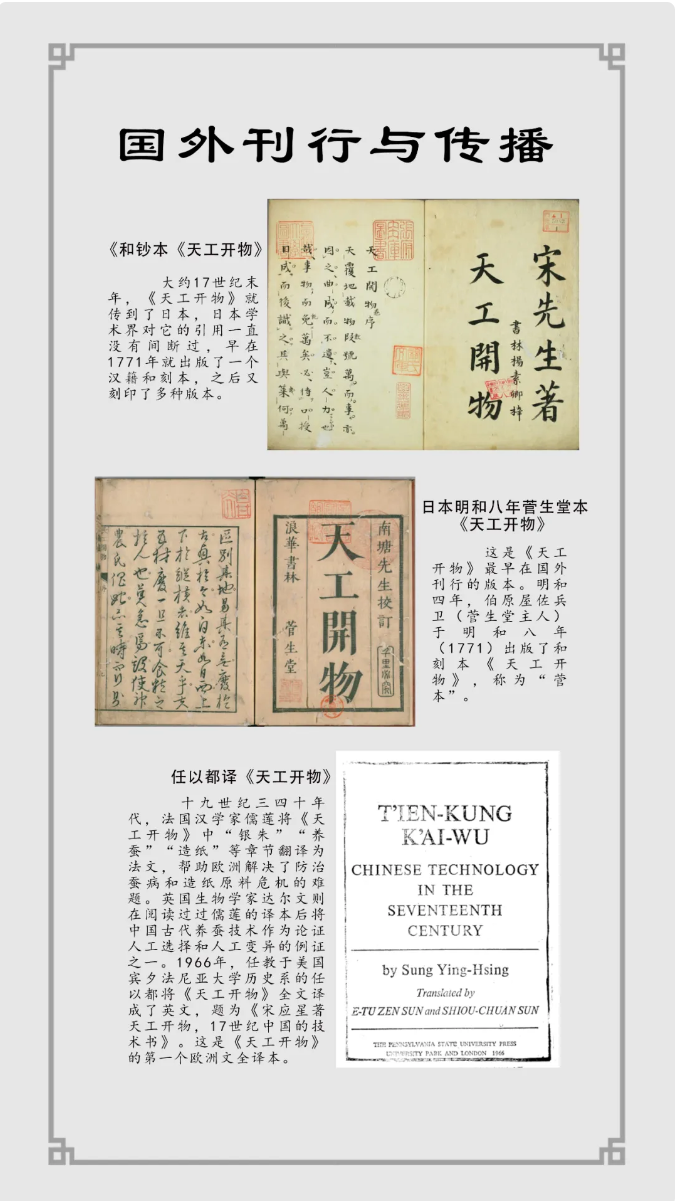 国外刊行与传播
《和钞本《天工开物》
大约17世纪末
年，《天工开物》就
传到了日本，日本学
术界对它的引用一直
没有间断过，早在
1771年就出版了一个
汉籍和刻本，之后又
刻印了多种版本。
宋先生著
天工開物
書林楊素卿梓
天工開物序
天覆地載物段號萬而事亦
因之曲成而不遺豈人力也
哉事物而既萬矣必待口授
目成而後識之其與幾何萬
日本明和八年菅生堂本
《天工开物》
这是《天工
开物》最早在国外
刊行的版本。明和
四年，伯原屋佐兵
卫（菅生堂主人）
于明和八年
（1771）出版了和
刻本《天工开
物》，称为“菅
本”。
南塘先生校訂
千里必究
天工開物
浪華書林
菅生堂
任以都译《天工开物》
十九世纪三四十年
代，法国汉学家儒莲将《天
工开物》中“银朱”“养
蚕”“造纸”等章节翻译为
法文，帮助欧洲解决了防治
蚕病和造纸原料危机的难
题。英国生物学家达尔文则
在阅读过过儒莲的译本后将
中国古代养蚕技术作为论证
人工选择和人工变异的例证
之一。1966年，任教于美国
宾夕法尼亚大学历史系的任
以都将《天工开物》全文译
成了英文，题为《宋应星著
天工开物，17世纪中国的技
术书》。这是《天工开物》
的第一个欧洲文全译本。
T'IEN-KUNG
K'AI-WU
CHINESE TECHNOLOGY
IN THE
SEVENTEENTH
CENTURY
by Sung Ying-Hsing
Translated by
E-TU ZEN SUN and SHIOU-CHUAN SUN
THE PENNSYLVANIA STATE UNIVERSITY PRESS
UNIVERSITY PARK AND LONDON 1966